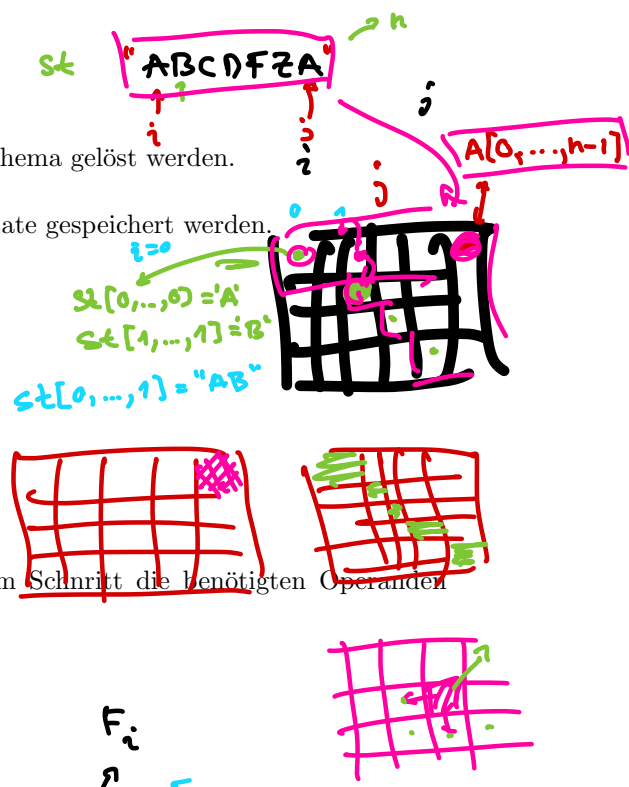 n
st "ABCDFZA"
i j
i
j
hema gelöst werden.
A[0,...,n-1]
j
ate gespeichert werden.
0 1
i=0
st[0,...,0] = 'A'
st[1,...,1] = 'B'
st[0,...,1] = "AB"
m Schnritt die benötigten Operanden
F i